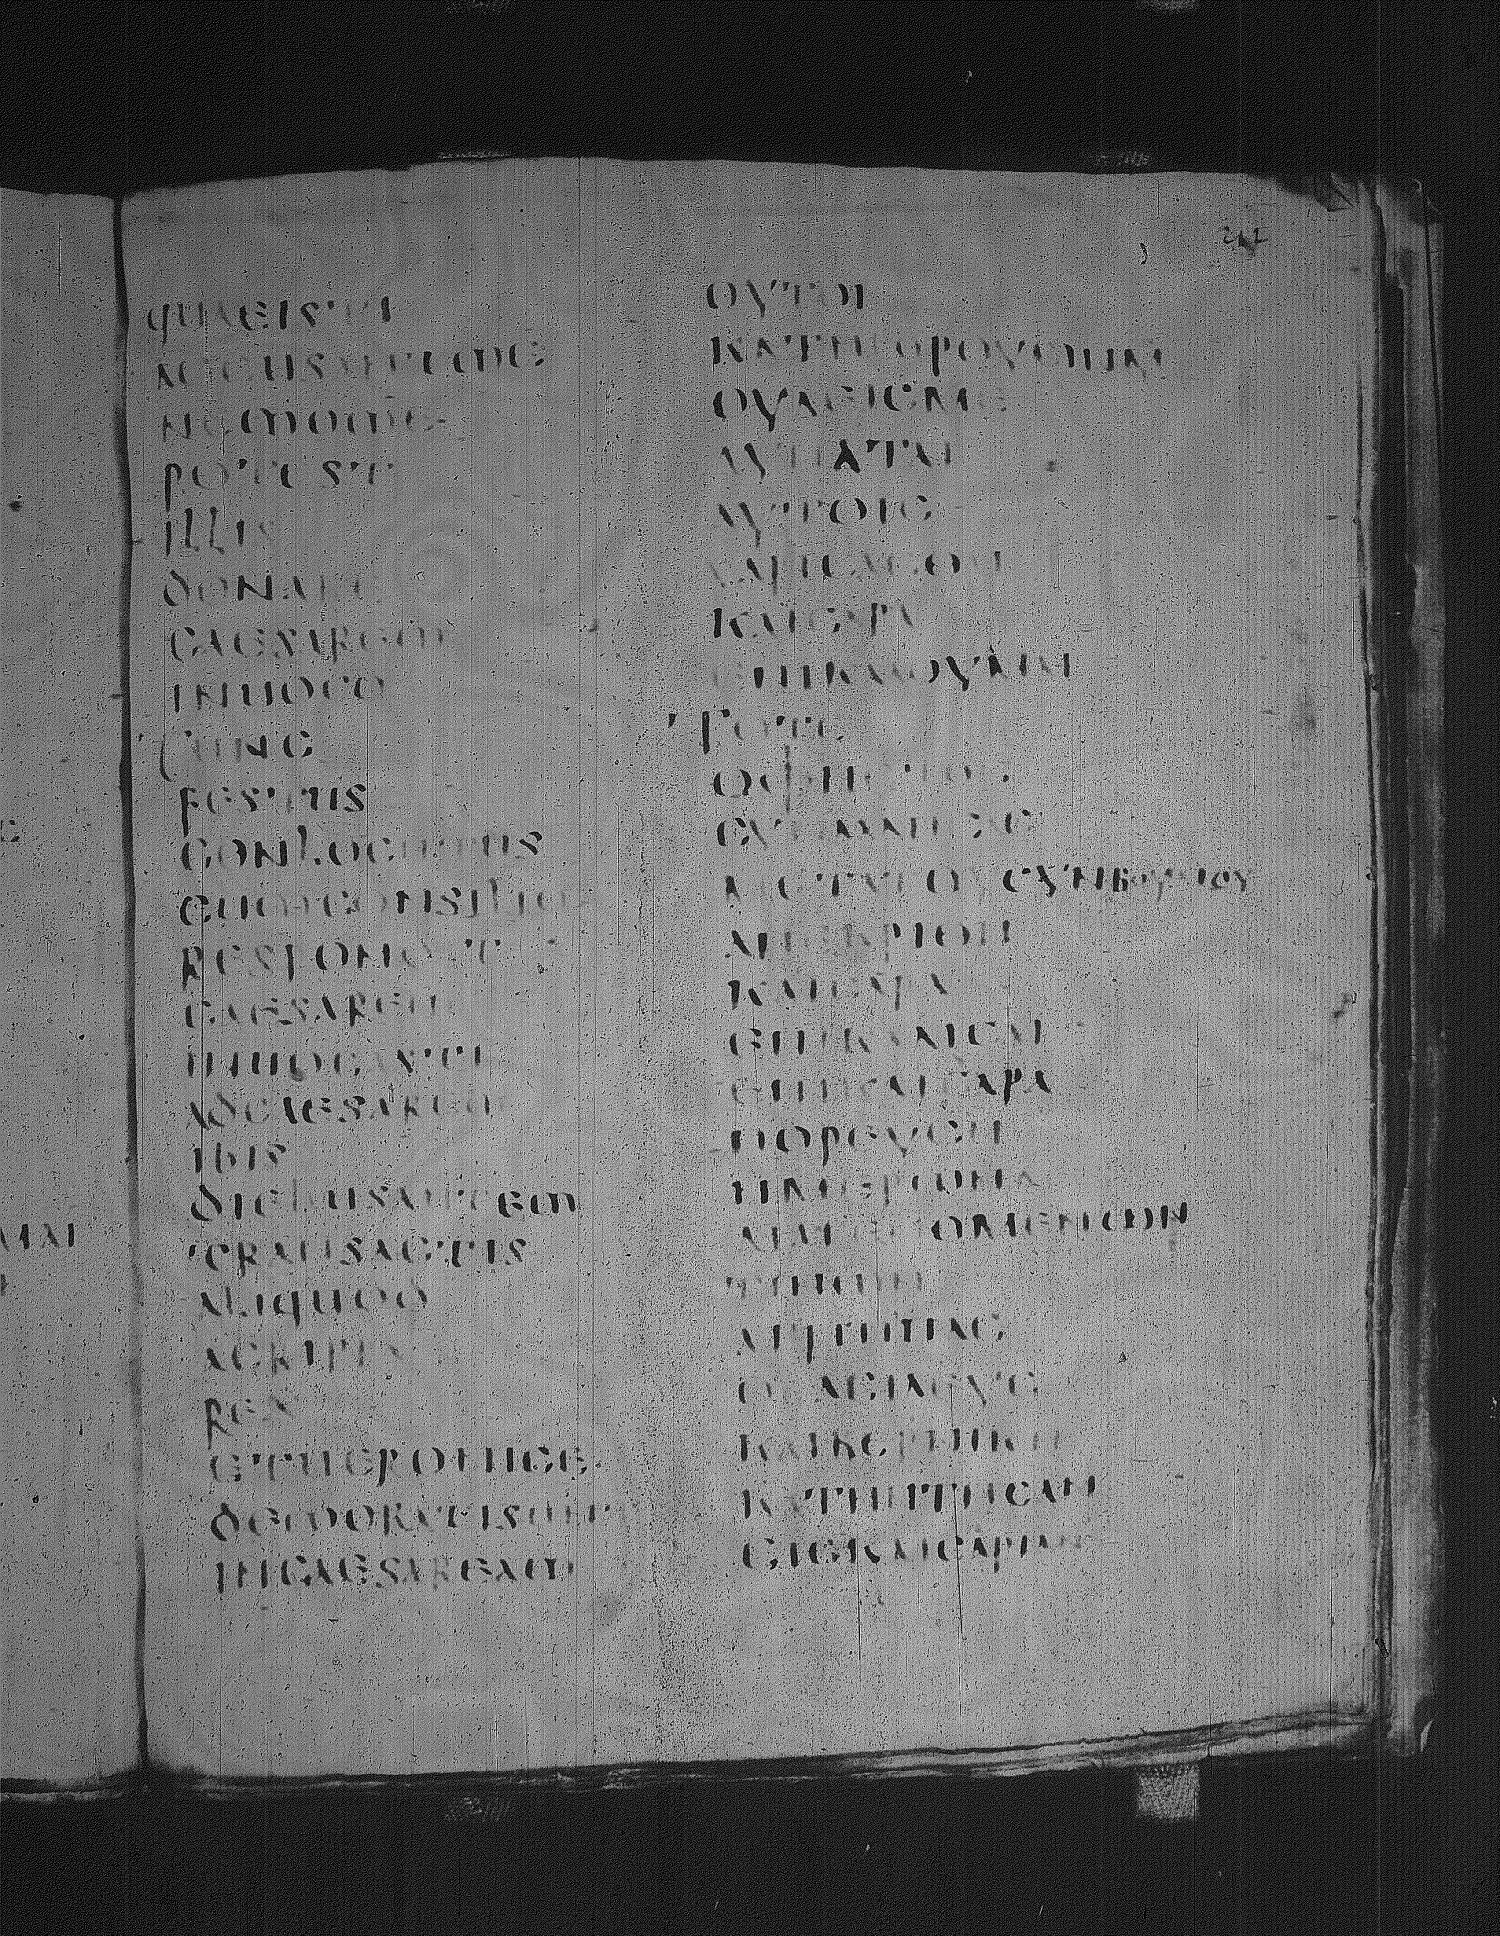 quaeisti
accusantme
nemome
potest
illis
donare
caesarem
inuoco
tunc
festus
conlocutus
cumconsilio
respondit
caesarem
inuocasti
adcaesarem
ibis
diebusautem
transactis
aliquod
acrippa
rex
etueronice
demoratisunt
incaesaream
ουτοι
κατηγορουσιν
ουδεισμε
δυναται
αυτοις
χαρισασθαι
καισαρα
επικαλουμαι
τοτε
οφηστος
μετατου συνβουλιου
απεκριθη
καισαρα
επικεκλησαι
επικαισαρα
πορευση
ημερων
διαγενομενων
τινων
αγριππας
οβασιλευς
καιβερνικη
κατηντησαν
εισκαισαριαν